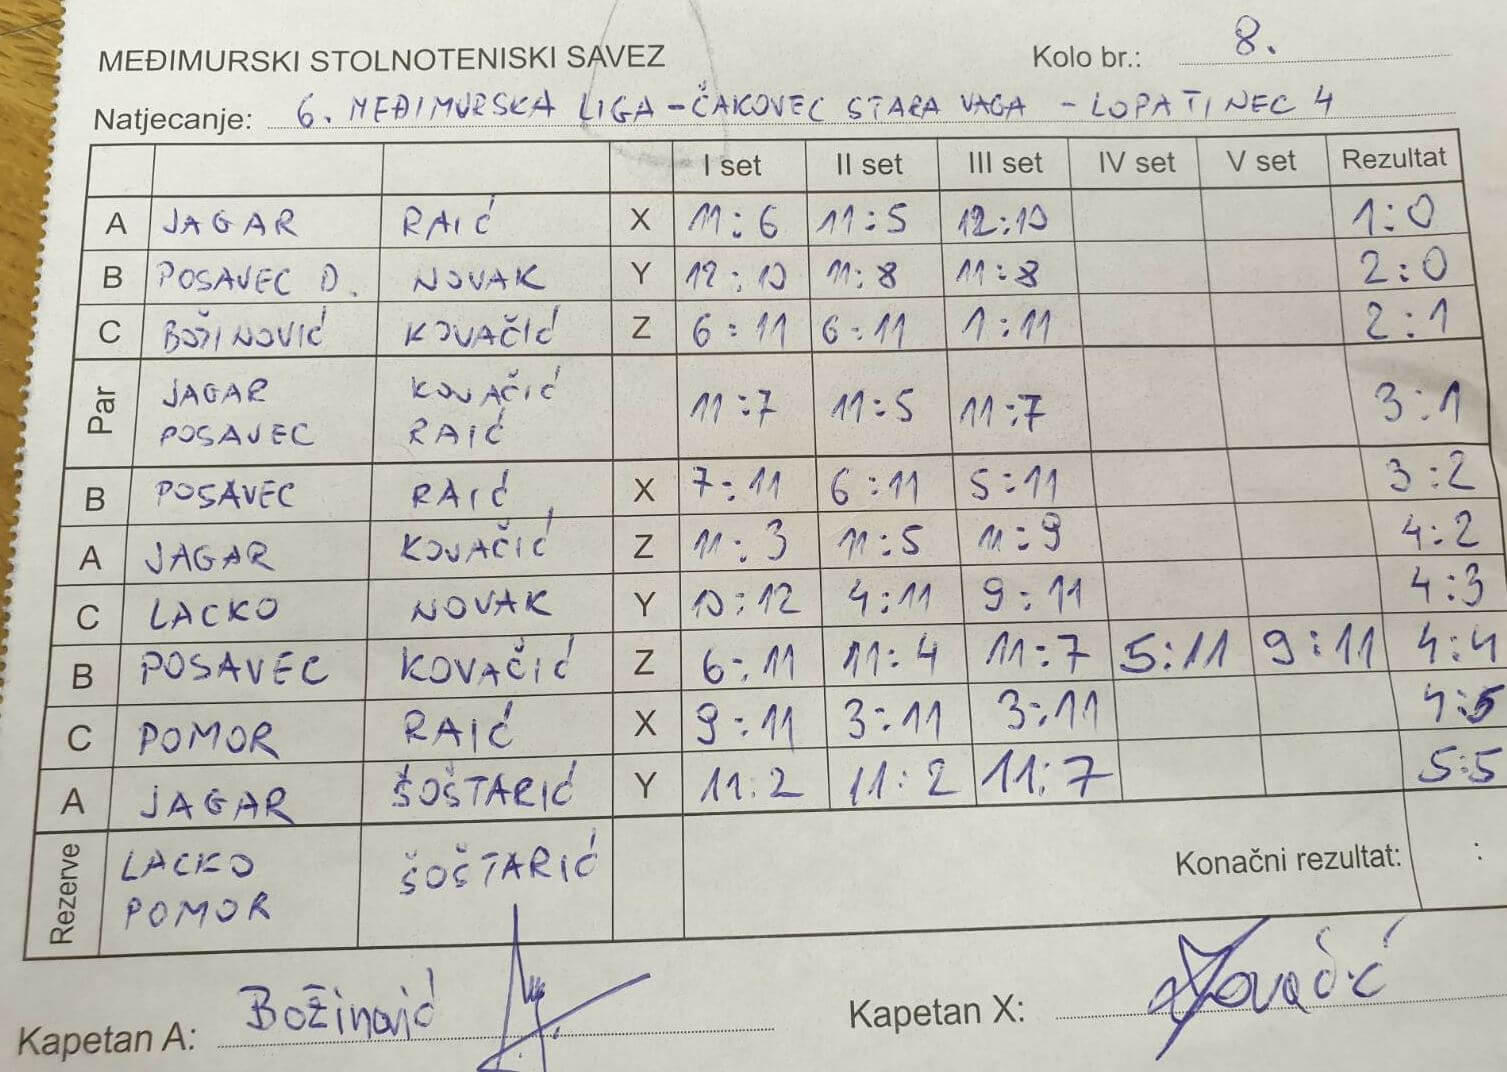 MEĐIMURSKI STOLNOTENISKI SAVEZ Kolo br.: 8.
Natjecanje: 6. MEĐIMURSKA LIGA - ČAKOVEC STARA VAGA - LOPATINEC 4
I set II set III set IV set V set Rezultat
A JAGAR RAIĆ X 11:6 11:5 12:10 1:0
B POSAVEC D. NOVAK Y 12:10 11:8 11:8 2:0
C BOŽINOVIĆ KOVAČIĆ Z 6:11 6:11 1:11 2:1
Par JAGAR KOVAČIĆ 11:7 11:5 11:7 3:1
POSAVEC RAIĆ
B POSAVEC RAIĆ X 7:11 6:11 5:11 3:2
A JAGAR KOVAČIĆ Z 11:3 11:5 11:9 4:2
C LACKO NOVAK Y 10:12 4:11 9:11 4:3
B POSAVEC KOVAČIĆ Z 6:11 11:4 11:7 5:11 9:11 4:4
C POMOR RAIĆ X 9:11 3:11 3:11 4:5
A JAGAR ŠOŠTARIĆ Y 11:2 11:2 11:7 5:5
Rezerve LACKO ŠOŠTARIĆ Konačni rezultat: :
POMOR
Kapetan A: Božinović Kapetan X: Kovačić